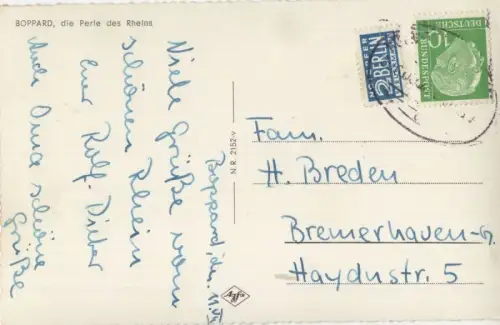 BOPPARD, die Perle des Rheins
Boppard, den 11.VI.
Viele Grüße vom
schönen Rhein
Euer Rolf-Dieter
Auch Oma schöne
Grüße
N.R. 2152-v
NOTOPFER
2 BERLIN
STEUERMARKE
10
DEUTSCHE
BUNDESPOST
Fam.
H. Breden
Bremerhaven-G.
Haydnstr. 5